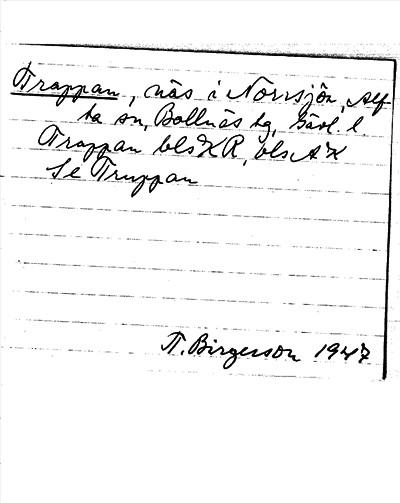 Trappan, näs i Norrsjön, Alf-
ta sn, Bollnäs tg, Gävl. l.
Trappan bls XR, bls AK
Se Truppan
T. Birgerson 1947